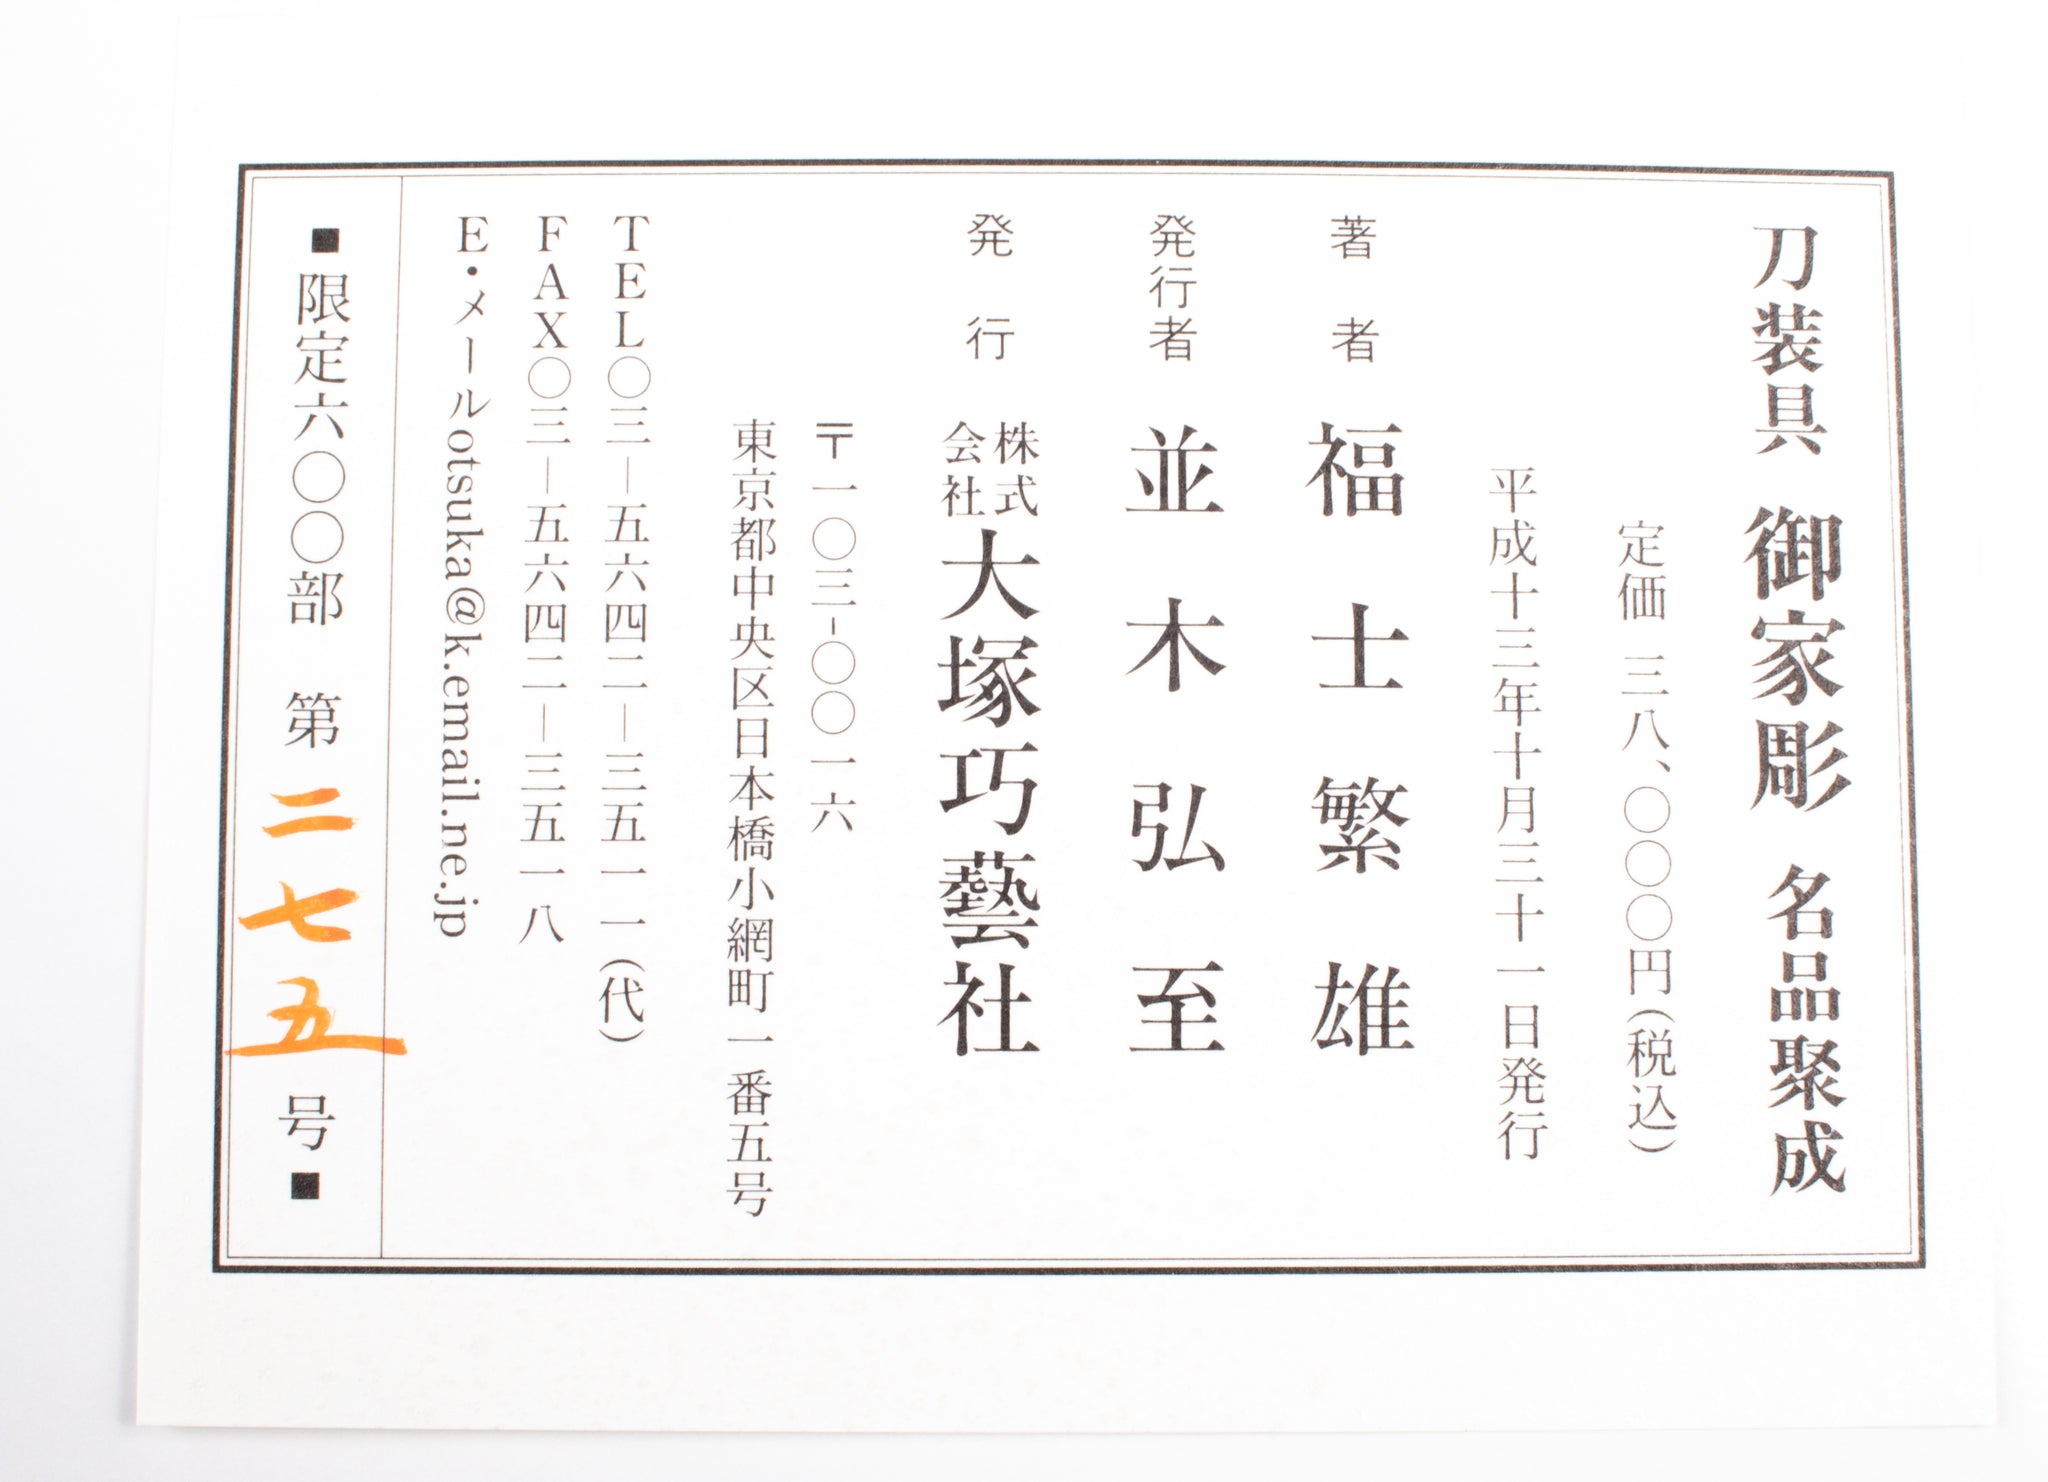 刀装具 御家彫 名品聚成
定価 三八、〇〇〇円(税込)
平成十三年十月三十一日発行
著者 福士繁雄
発行者 並木弘至
発行 株式会社 大塚巧藝社
〒一〇三-〇〇一六
東京都中央区日本橋小網町一番五号
TEL〇三―五六四二―三五一一(代)
FAX〇三―五六四二―三五一八
E・メールotsuka@k.email.ne.jp
■限定六〇〇部 第二七五号■